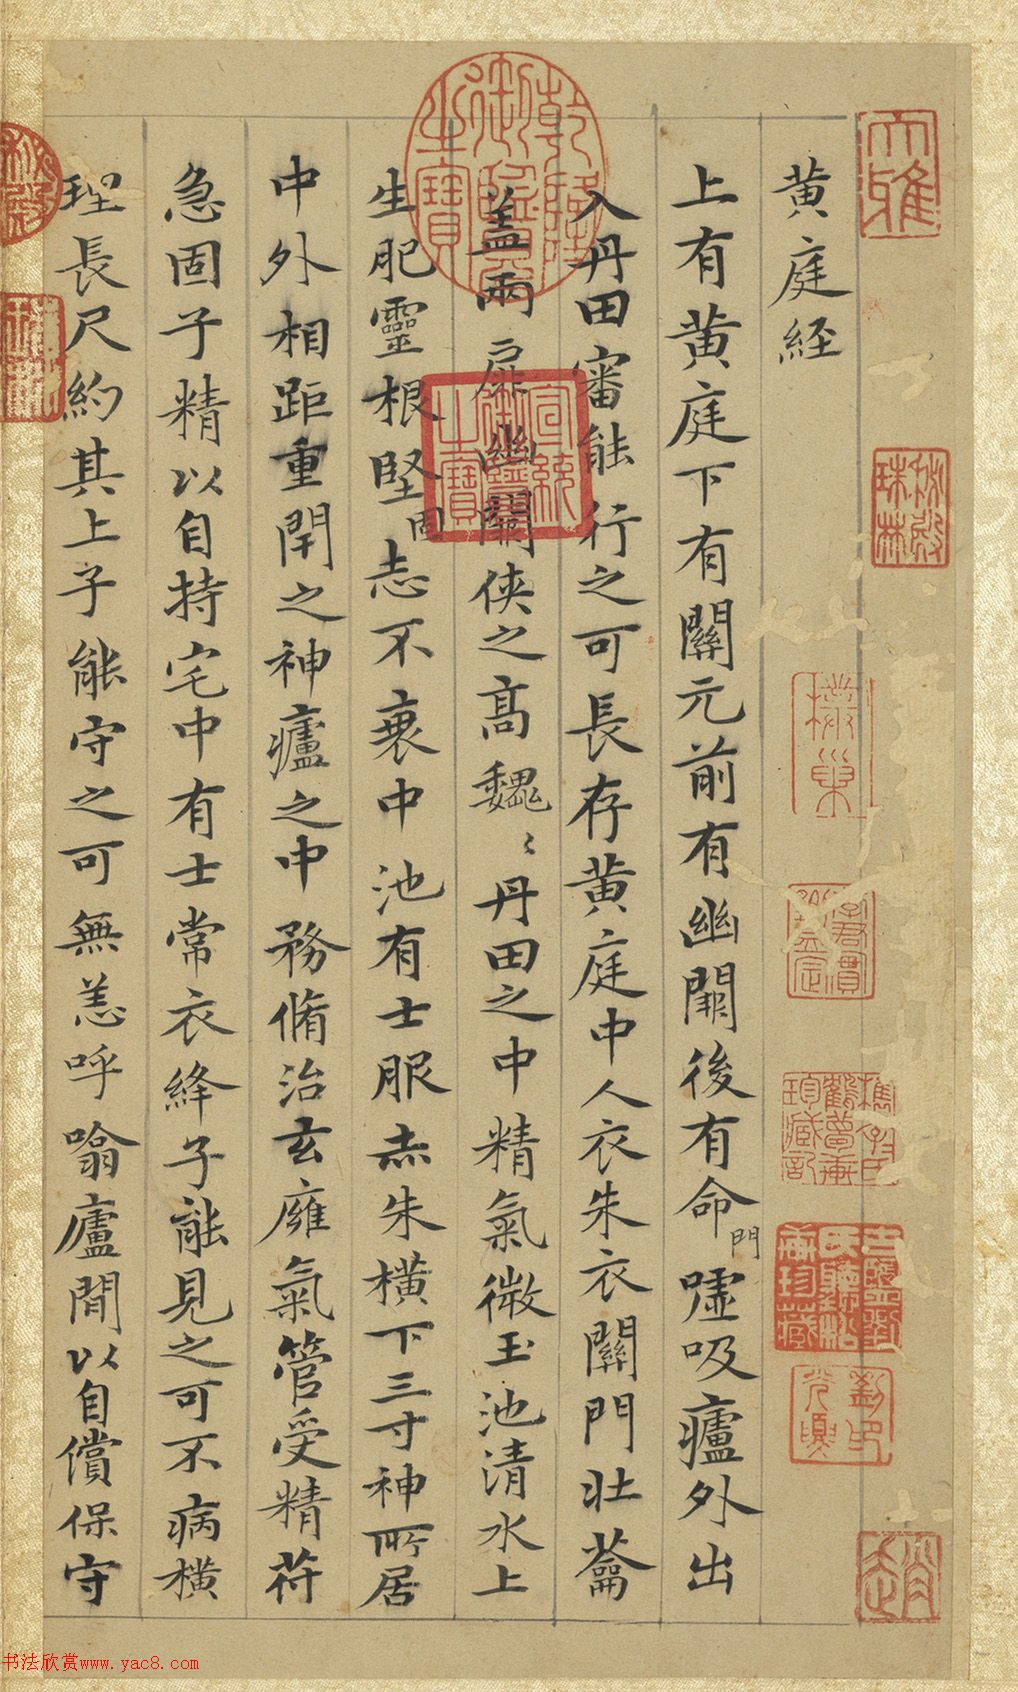 黄庭経
上有黄庭下有關元前有幽闕後有命門嘘吸廬外出
入丹田審能行之可長存黄庭中人衣朱衣關門壯蘥
盖兩扉幽闕侠之髙魏〻丹田之中精氣微玉池清水上
生肥靈根堅固志不衰中池有士服赤朱横下三寸神所居
中外相距重閇之神廬之中務脩治玄癰氣管受精苻
急固子精以自持宅中有士常衣絳子能見之可不病横
理長尺約其上子能守之可無恙呼噏廬間以自償保守
乾隆御覽之寶
宣統御覽之寶
大雅
秘殿珠林
劉印光暻
书法欣赏www.yac8.com